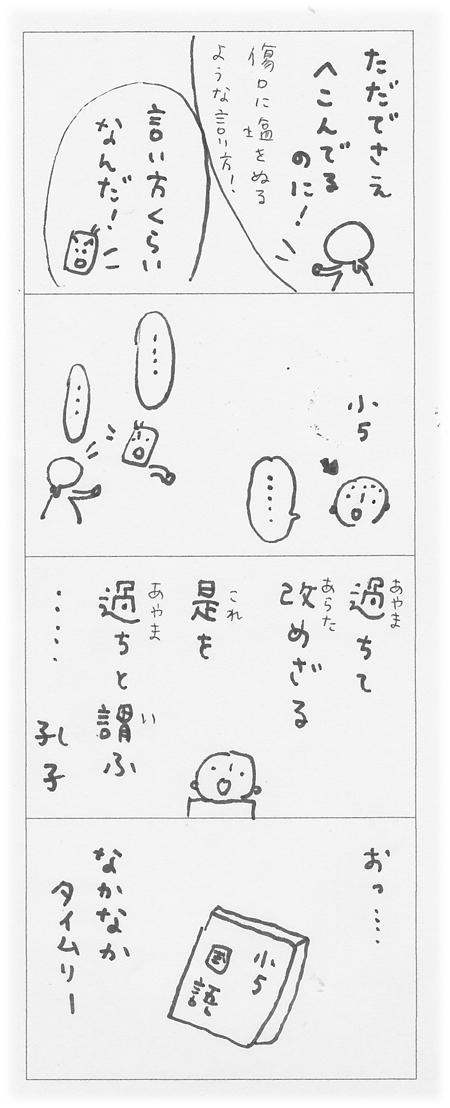 ただでさえ
へこんでる
のに!
傷口に塩をぬる
ような言い方!
言い方くらい
なんだ!
小5
・・・・・
・・・・
・・・・
あやま
過ちて
あらた
改めざる
これ
是を
あやま
過ちと謂ふ
い
・・・・・
孔子
おっ・・・・
小5
国語
なかなか
タイムリー